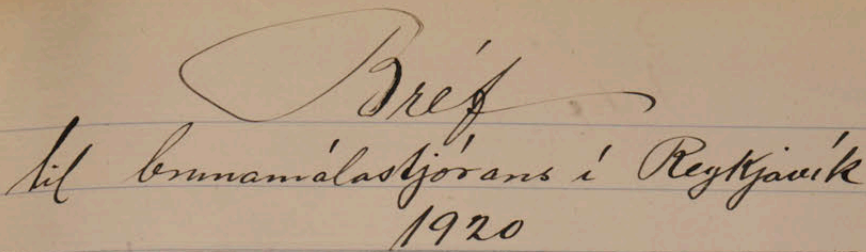 Bréf
til brunamálastjórans í Reykjavík
1920